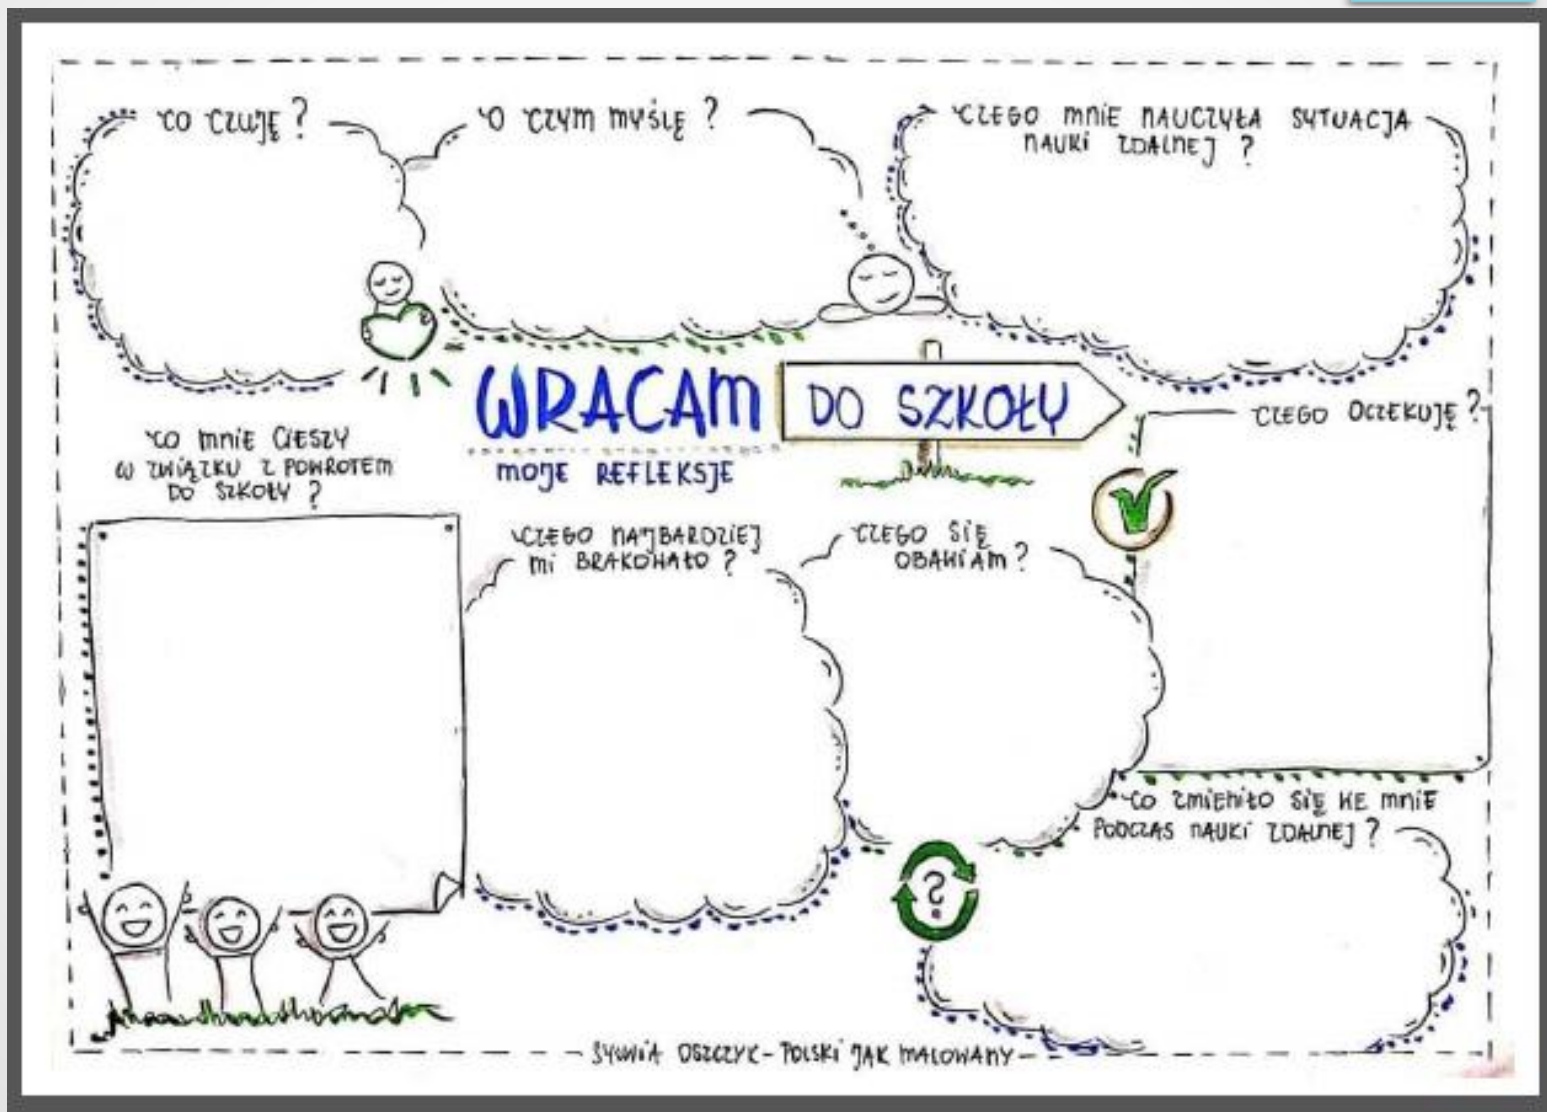 CO CZUJĘ ?
O CZYM MYŚLĘ ?
CZEGO MNIE NAUCZYŁA SYTUACJA
NAUKI ZDALNEJ ?
WRACAM DO SZKOŁY
MOJE REFLEKSJE
CZEGO OCZEKUJĘ ?
CO MNIE CIESZY
W ZWIĄZKU Z POWROTEM
DO SZKOŁY ?
CZEGO NAJBARDZIEJ
MI BRAKOWAŁO ?
CZEGO SIĘ
OBAWIAM ?
CO ZMIENIŁO SIĘ WE MNIE
PODCZAS NAUKI ZDALNEJ ?
?
SYLWIA OSZCZYK - POLSKI JAK MALOWANY